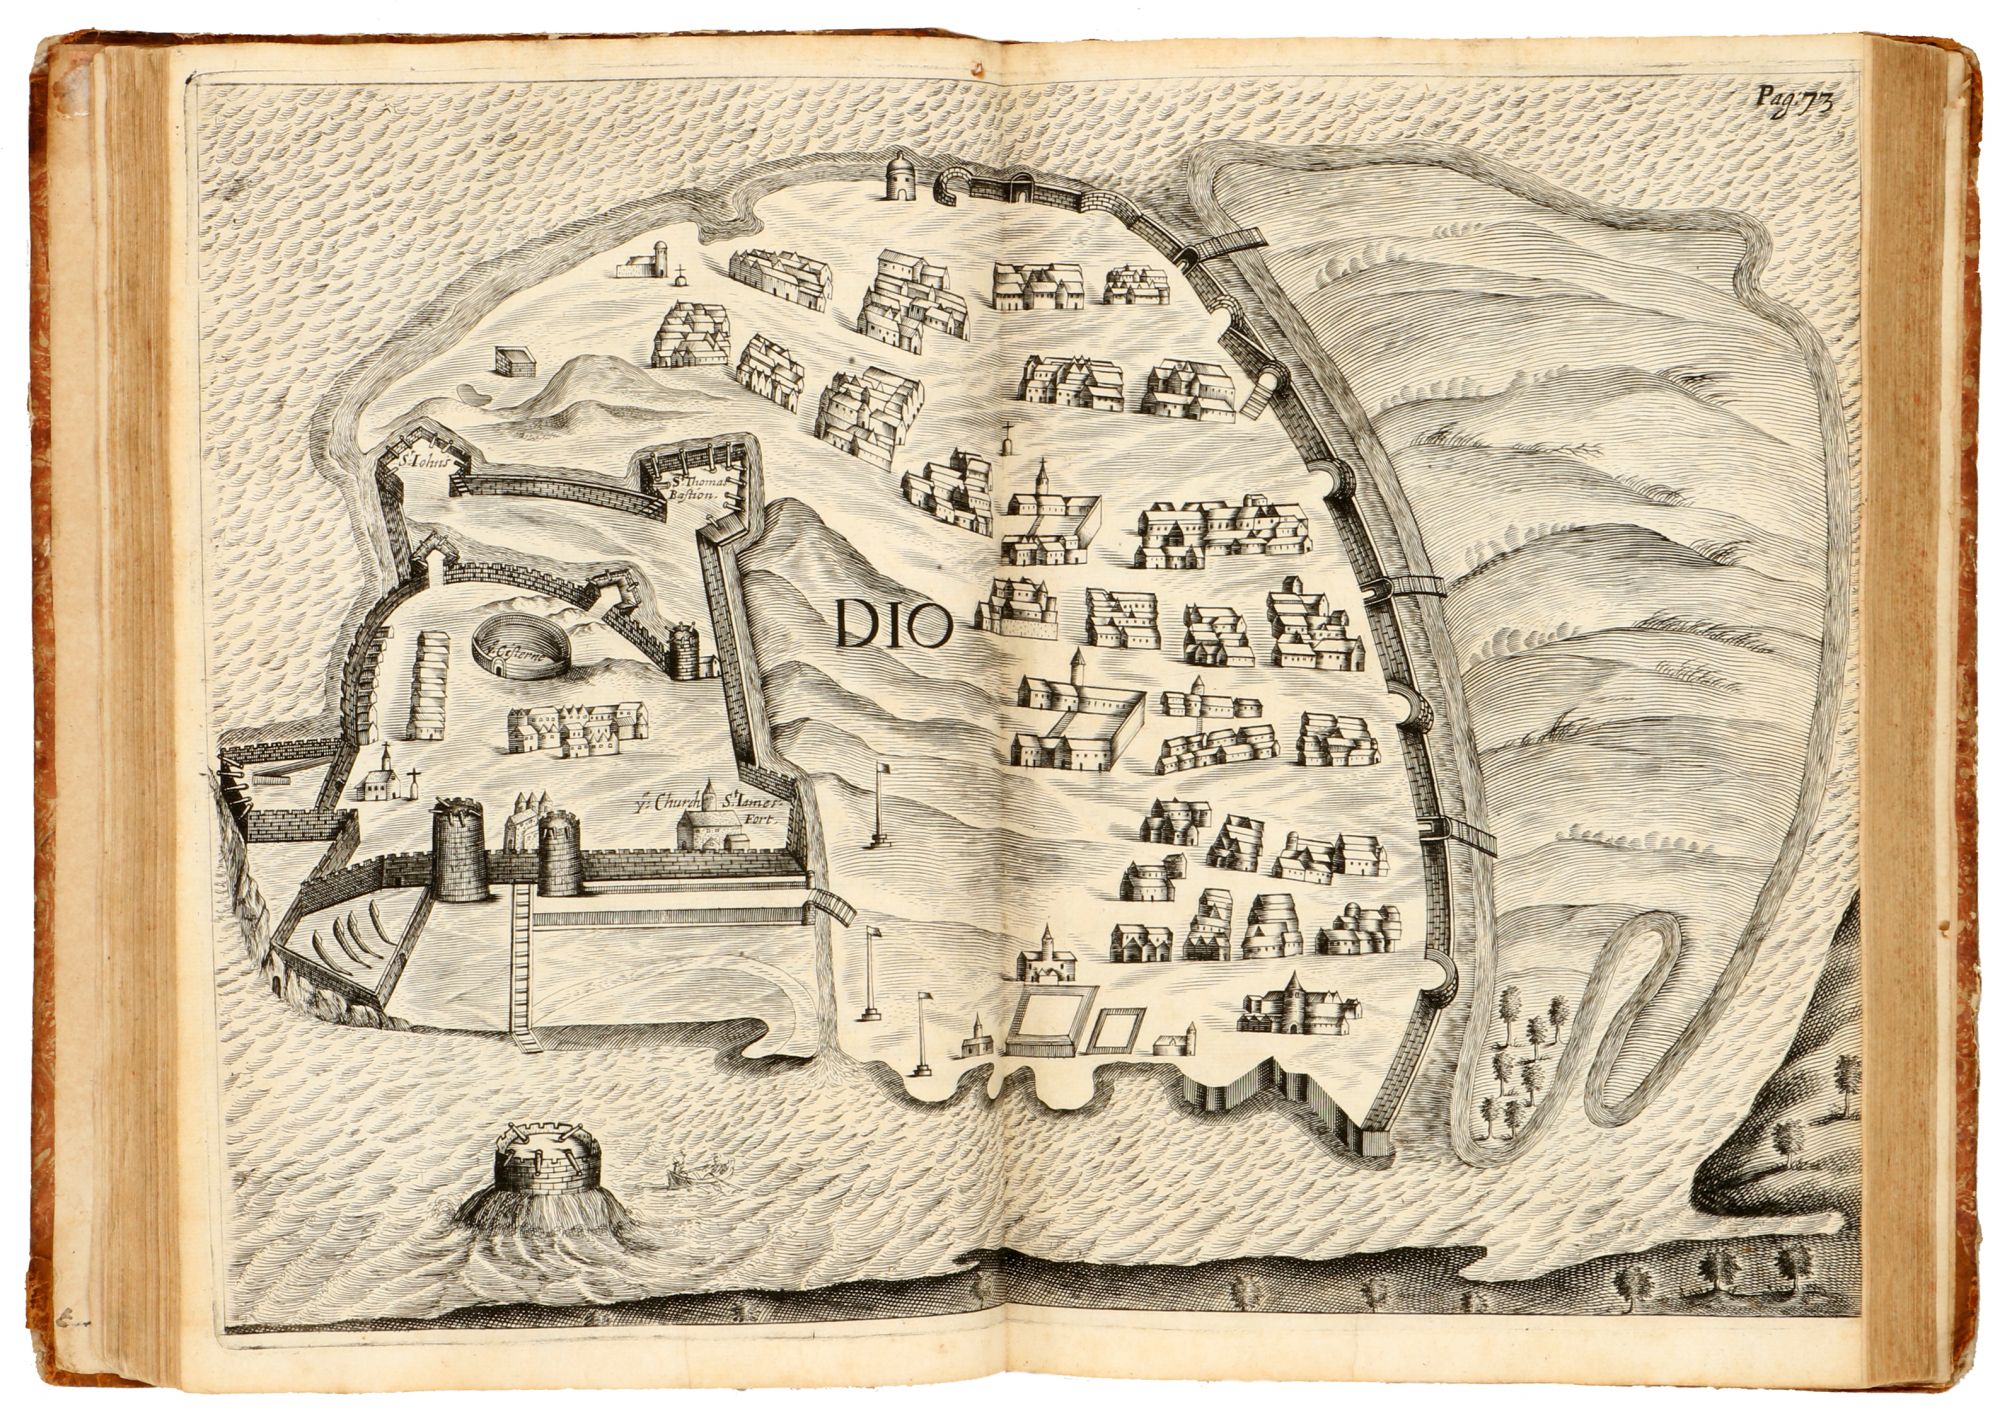 Pag: 73
St. Iohns
St. Thomas
Bastion.
DIO
ye. Cesterne
ye. Church St. Iames
Fort.